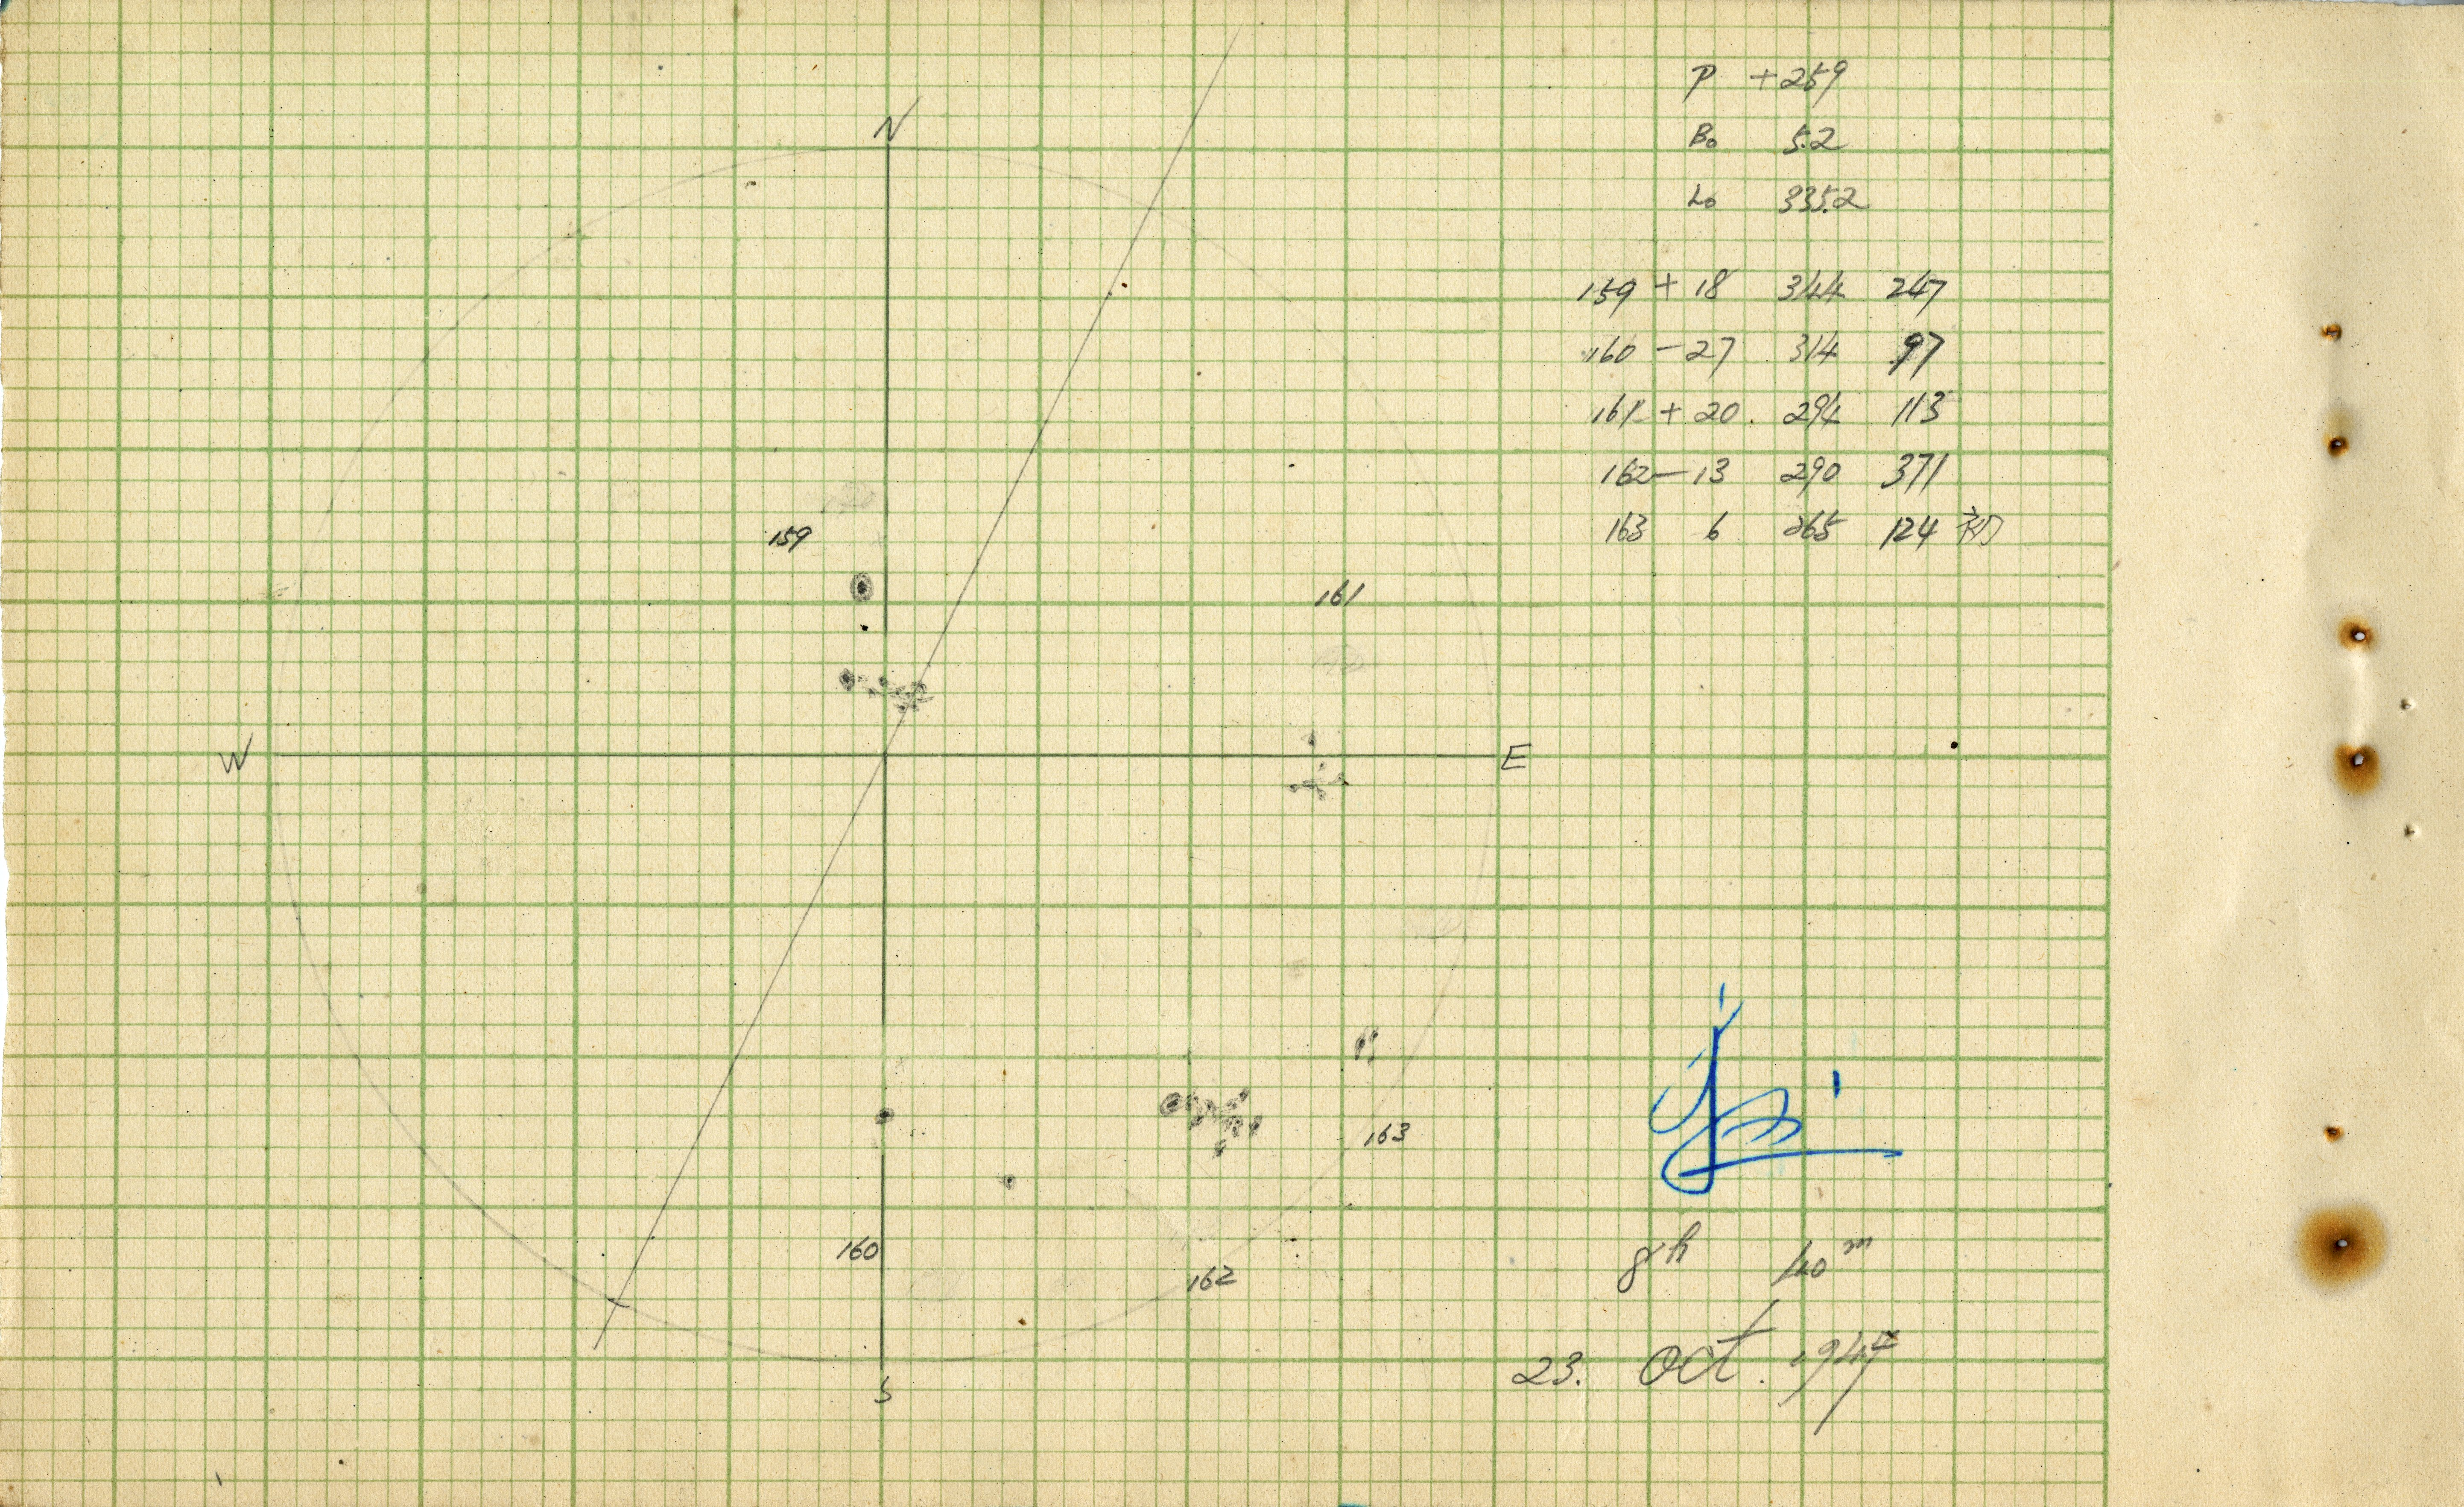 N
P +259
B₀ 5.2
L₀ 335.2
159 + 18 344 247
160 - 27 314 97
161 + 20. 294 113
162 - 13 290 371
163 6 265 124 初
159
161
W
E
163
160
162
S
8h 40m
23. Oct. 1947